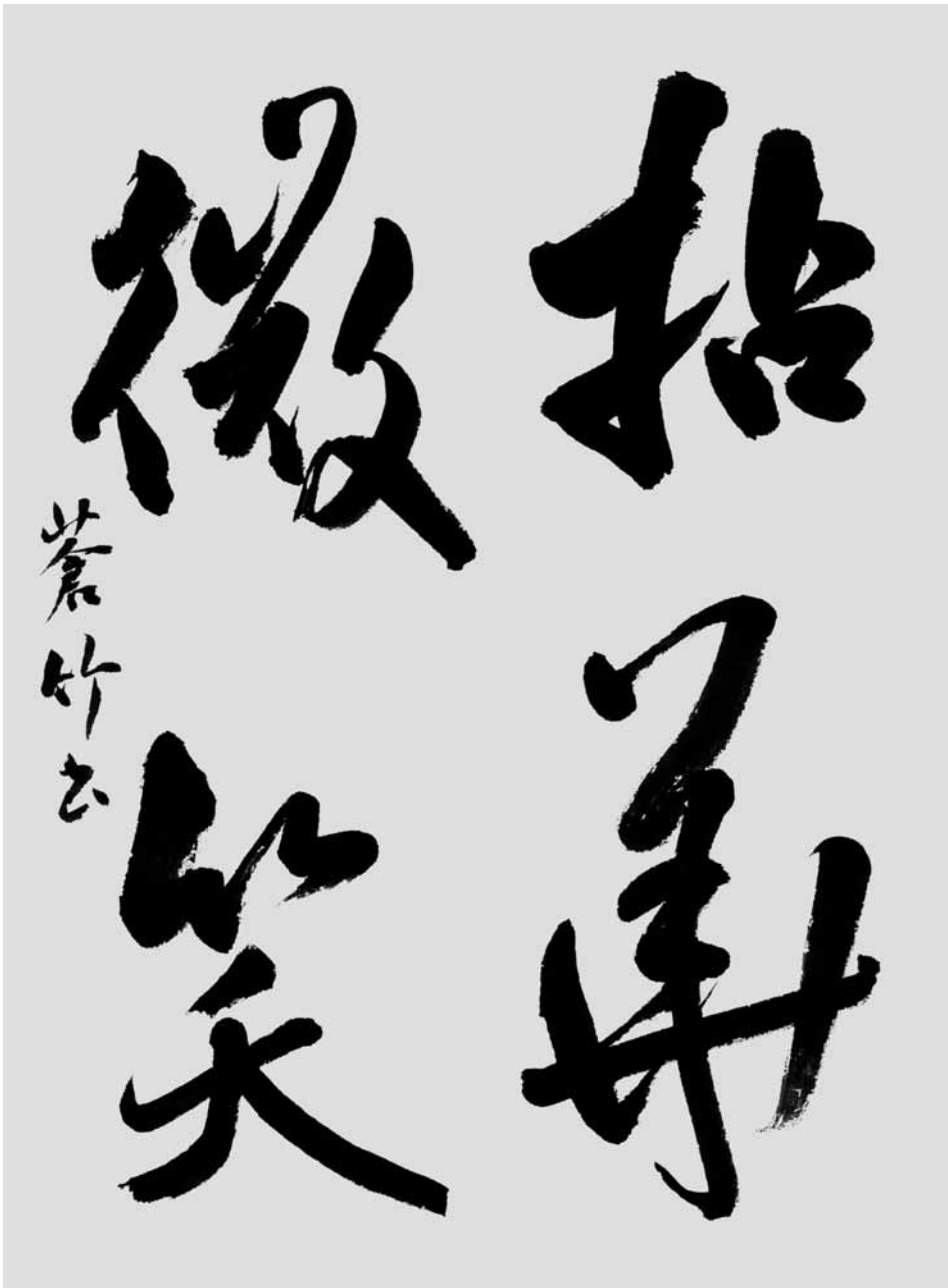 拈華
微笑
蒼竹书